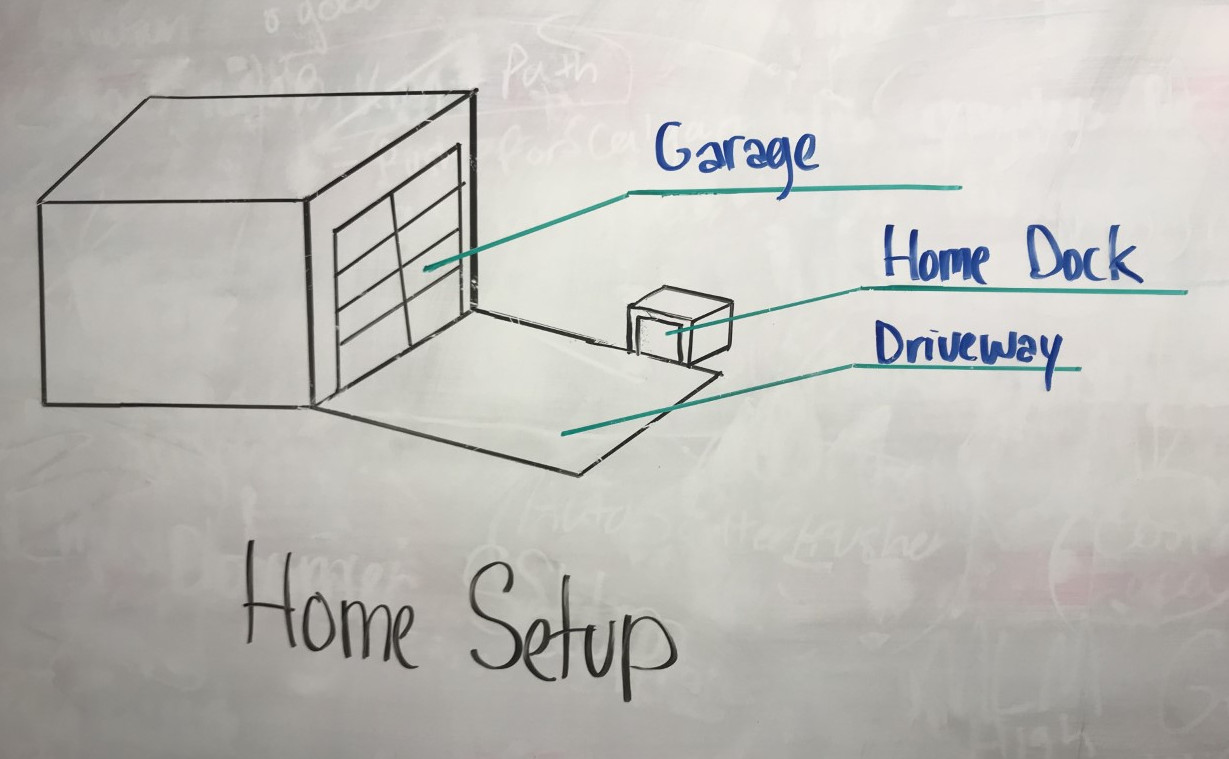 Path
Garage
Home Dock
Driveway
Home Setup